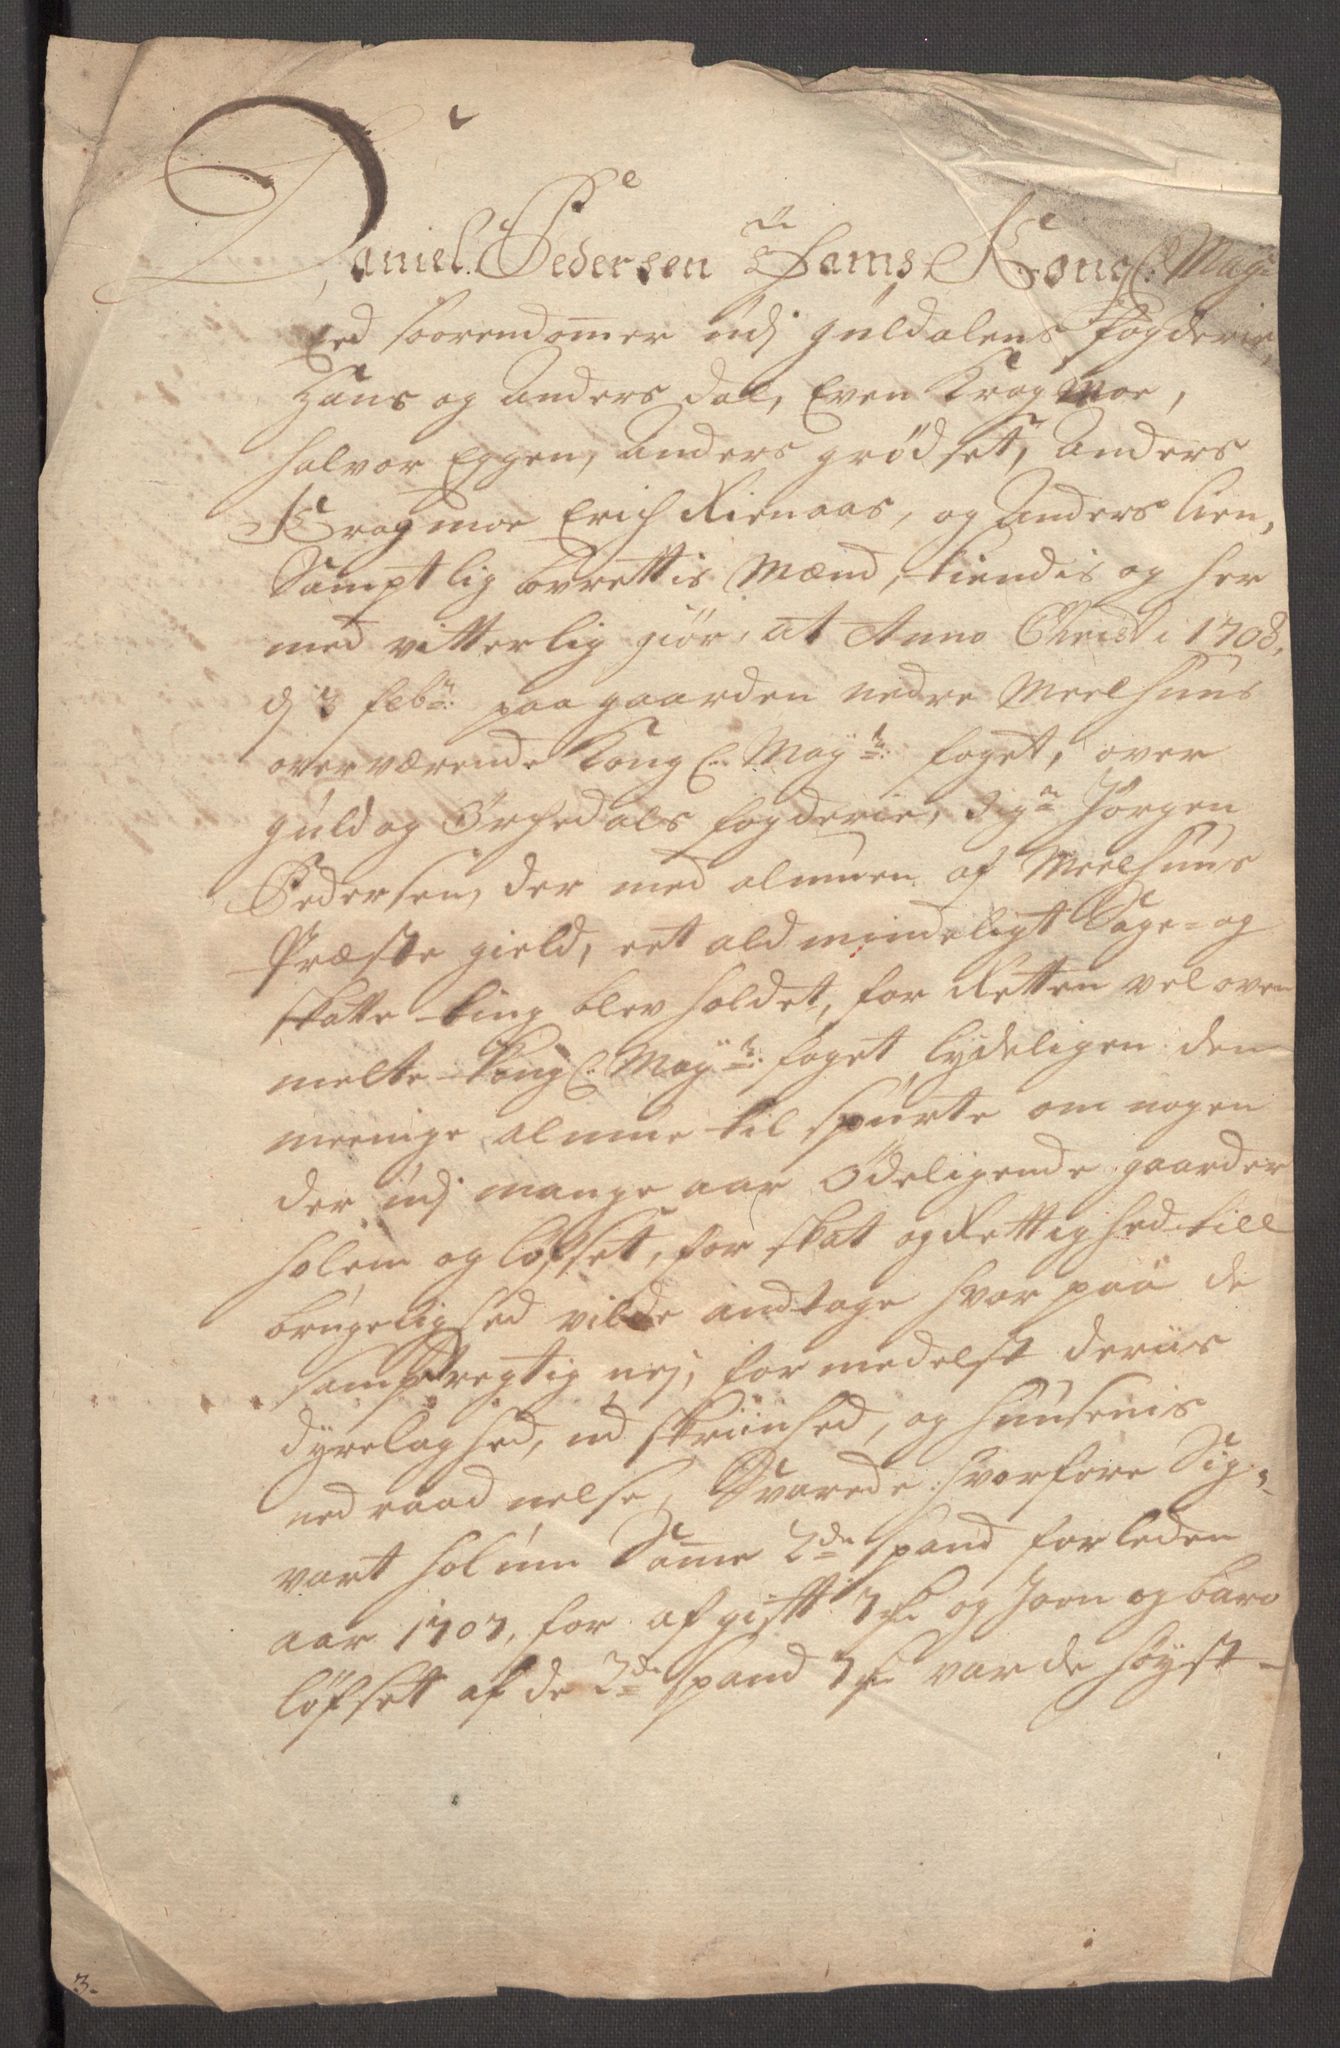 Daniel Pedersen Thams Kong: May:
Eed soorendommer udj guldalens fogderie,
Hans og Anders dal, Even Kragmoe,
halvor Eggen, anders grødset, anders
Kragmoe Erich Rienaas, og Anders lien,
Samptlig Lavrettis Mænd, kiendis og her
med vitterlig giør, at Anno Christi 1708,
dj 3 feb: paa gaarden nedre Meelhuus
overværende Kong: May: foget, over
guld og Ørchedals fogderie, Sig: Jørgen
Pedersen, der med almuen af Meelhuus
Præste gield, eet ald mindeligt Sage= og
skatte ting blev holdet, for Retten vel oven
melte Kong: May: foget lydeligen den
meenige almue til spurte om nogen
der udj mange aar Ødeligende gaarder
holem og løfset, for skat og Rettighed till
brugelighed vilde andtage hvor paa de
samptregtig nej, formedelst deriis
dyrelaghed, ud skriinhed, og huusenis
ned raadnelse, Svarede: hvorfore Sig=
vart holum Samme 2de spand forleden
aar 1707, for afgift 3 og Joen og baro
løfsett af de 3de spand 3 var de høyst=
3.